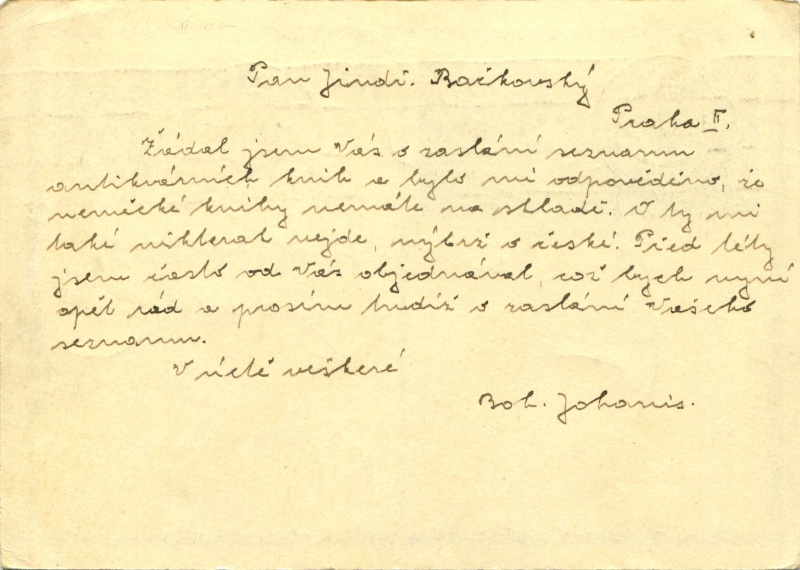 Pan Jindř. Bačkovský
Praha II.
Žádal jsem Vás o zaslání seznamu
antikvárních knih a bylo mi odpověděno, že
německé knihy nemáte na skladě. O ty mi
také nikterak nejde, nýbrž o české. Před léty
jsem často od Vás objednával, což bych nyní
opět rád a prosím tudíž o zaslání Vašeho
seznamu.
V úctě veškeré
Boh. Johanis.